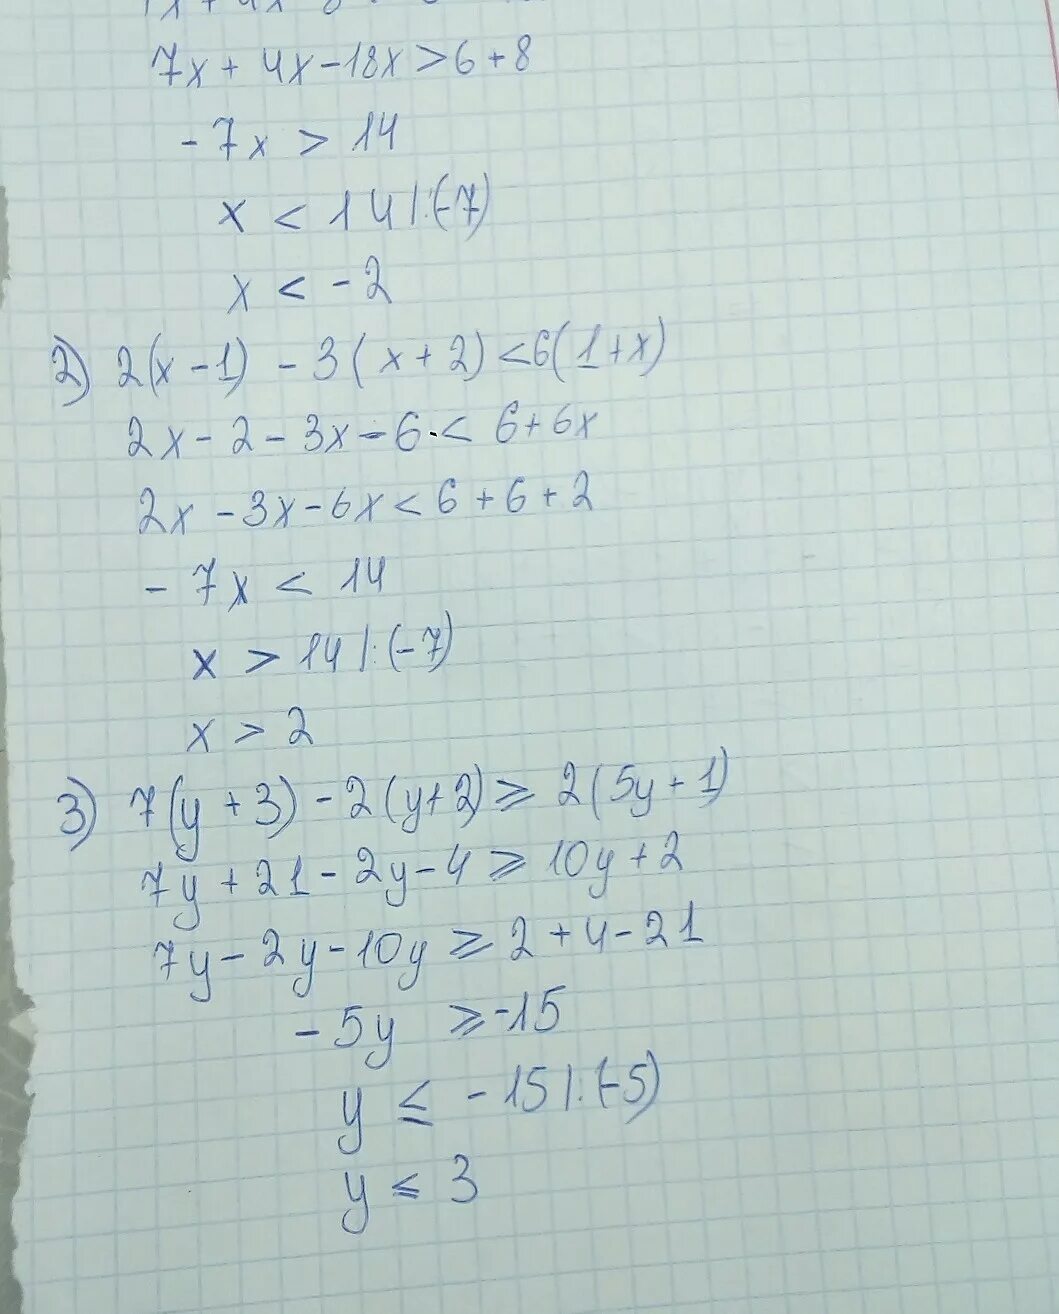 7x + 4x - 18x > 6 + 8
- 7x > 14
x < 14 |:(-7)
x < - 2
2) 2(x - 1) - 3(x + 2) < 6(1 + x)
2x - 2 - 3x - 6 < 6 + 6x
2x - 3x - 6x < 6 + 6 + 2
- 7x < 14
x > 14 |:(-7)
x > 2
3) 7(y + 3) - 2(y + 2) ⩾ 2(5y + 1)
7y + 21 - 2y - 4 ⩾ 10y + 2
7y - 2y - 10y ⩾ 2 + 4 - 21
- 5y ⩾ -15
y ⩽ - 15 |:(-5)
y ⩽ 3